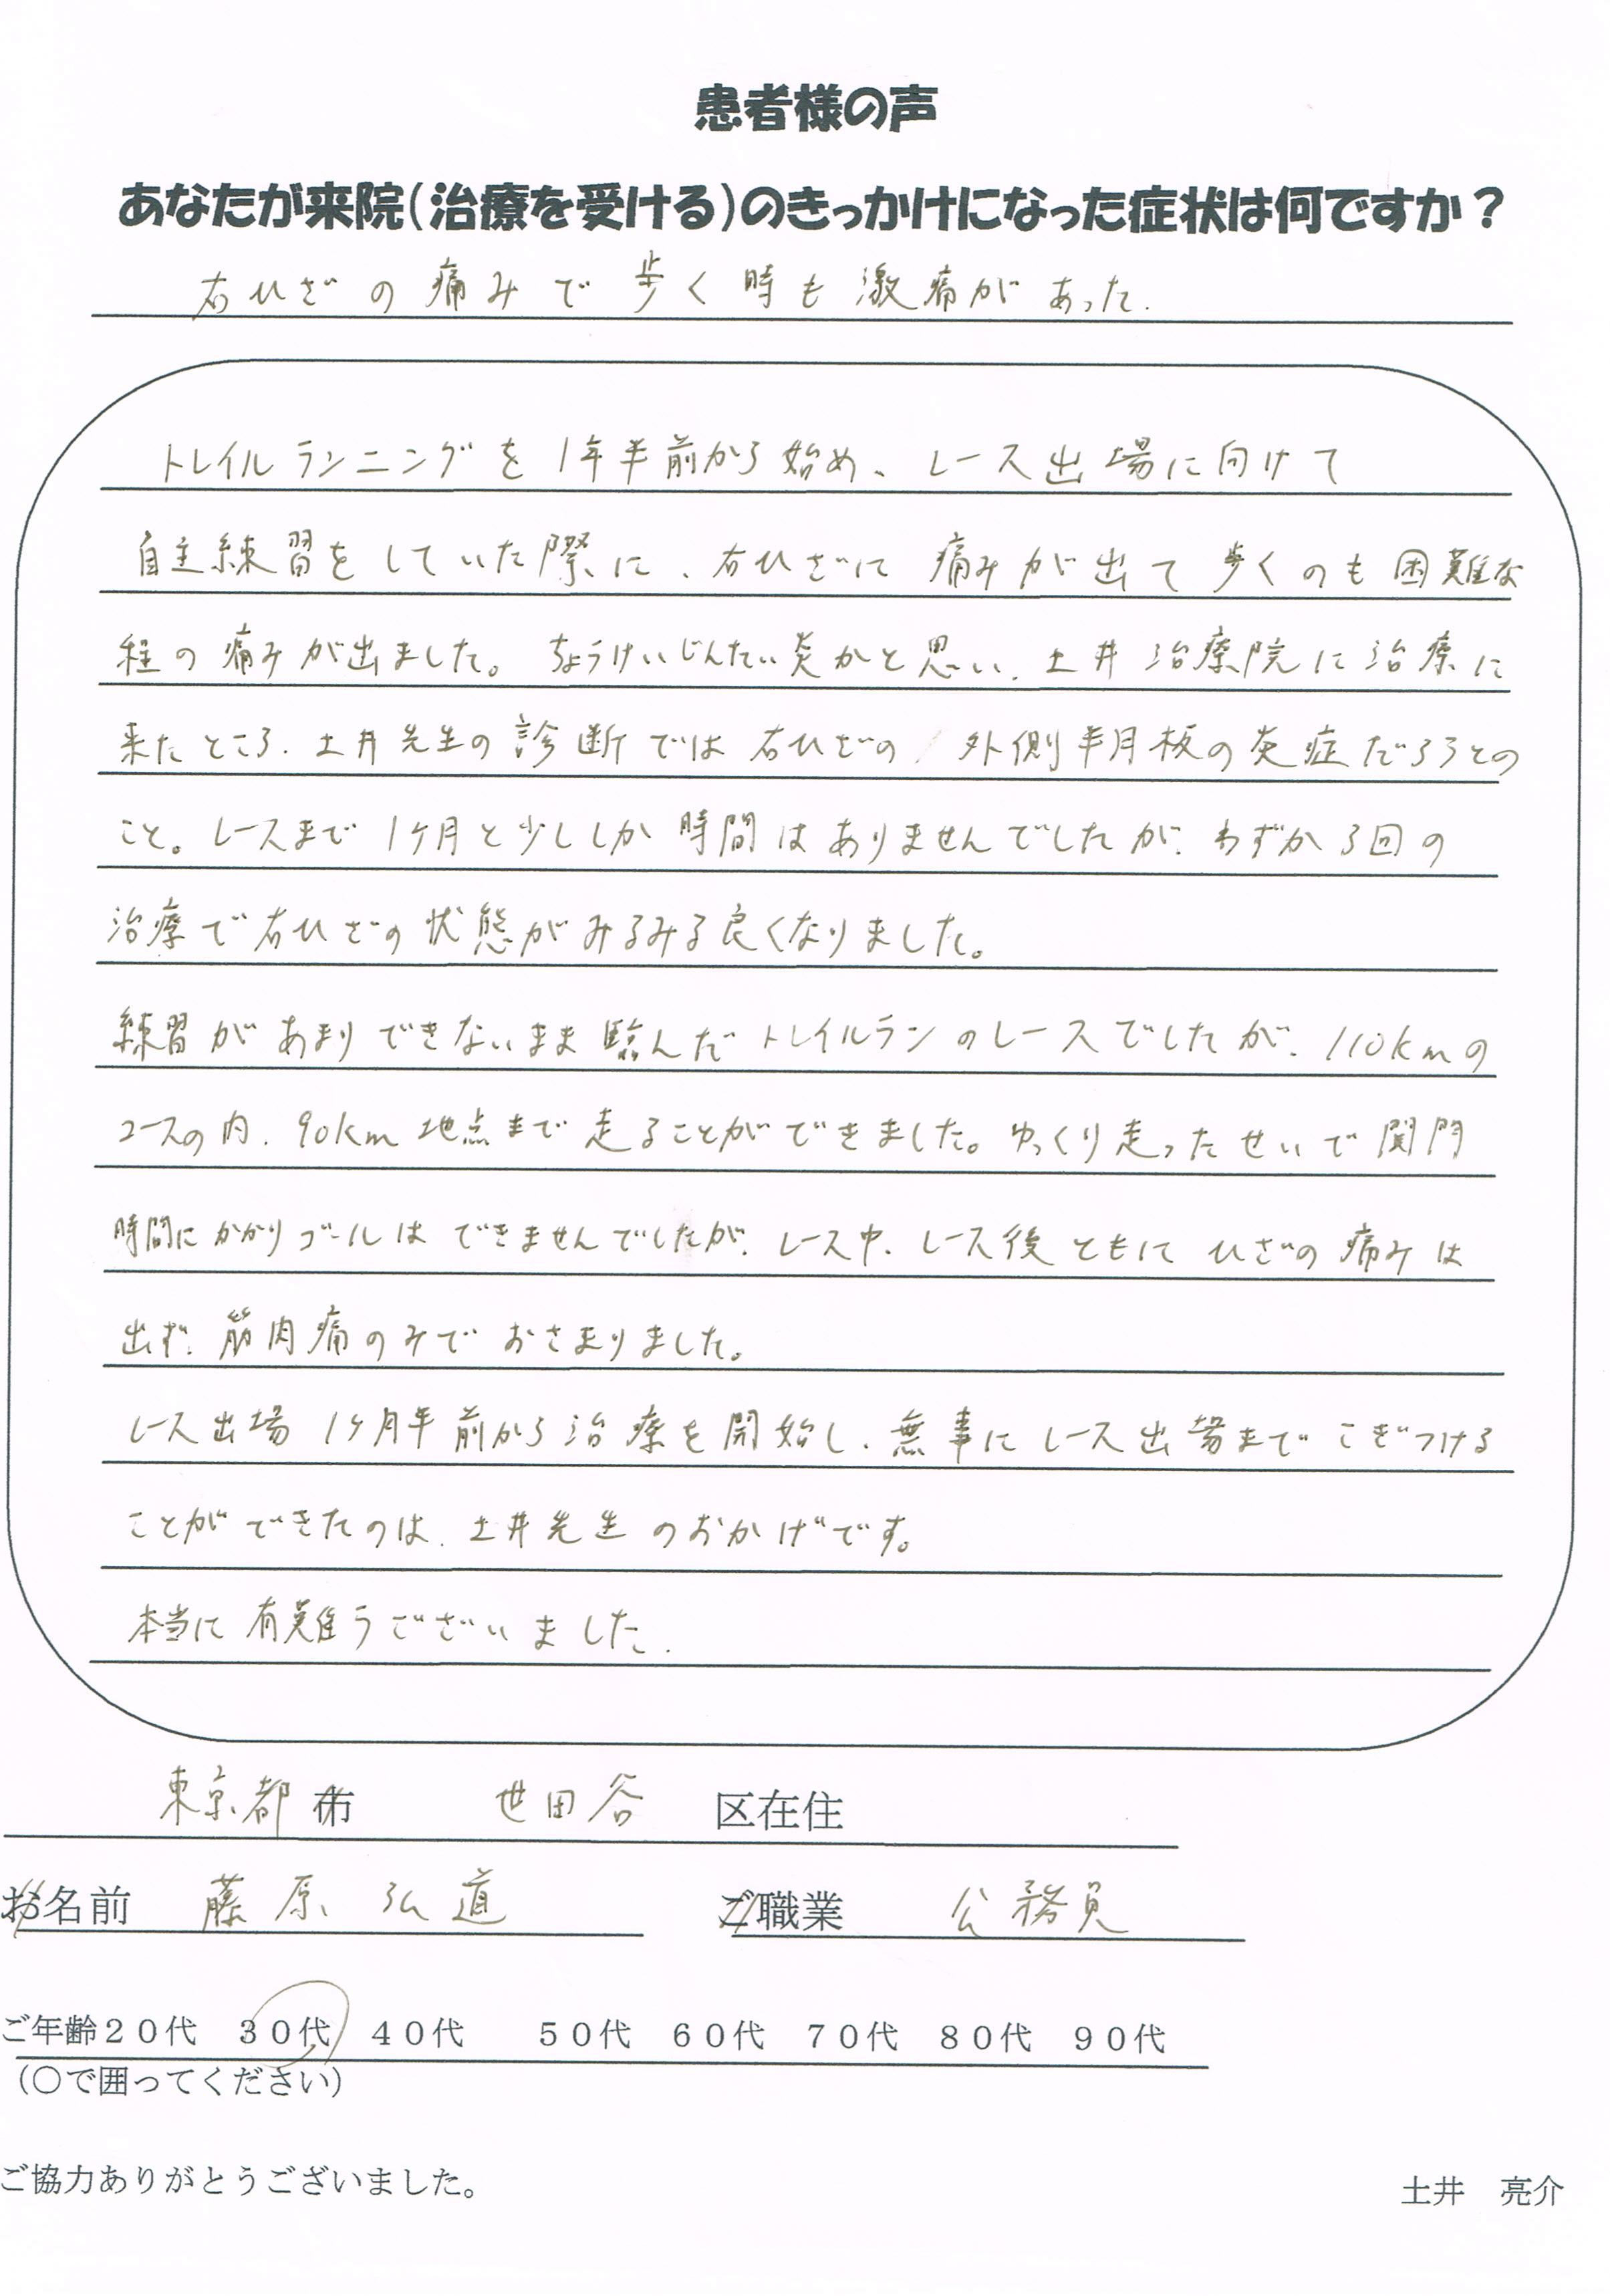 患者様の声
あなたが来院(治療を受ける)のきっかけになった症状は何ですか？
右ひざの痛みで歩く時も激痛があった.
トレイルランニングを1年半前から始め、レース出場に向けて
自主練習をしていた際に、右ひざに痛みが出て歩くのも困難な
程の痛みが出ました。ちょうけいじんたい炎かと思い、土井治療院に治療に
来たところ、土井先生の診断では右ひざの外側半月板の炎症だろうとの
こと。レースまで1ヶ月と少ししか時間はありませんでしたが、わずか3回の
治療で右ひざの状態がみるみる良くなりました。
練習があまりできないまま臨んだトレイルランのレースでしたが、110kmの
コースの内、90km地点まで走ることができました。ゆっくり走ったせいで関門
時間にかかりゴールはできませんでしたが、レース中、レース後ともにひざの痛みは
出ず、筋肉痛のみでおさまりました。
レース出場1ヶ月半前から治療を開始し、無事にレース出場までこぎつける
ことができたのは、土井先生のおかげです。
本当に有難うございました.
東京都 市 世田谷 区在住
お名前 藤原弘道 ご職業 公務員
ご年齢20代 30代 40代 50代 60代 70代 80代 90代
(○で囲ってください)
ご協力ありがとうございました。 土井 亮介